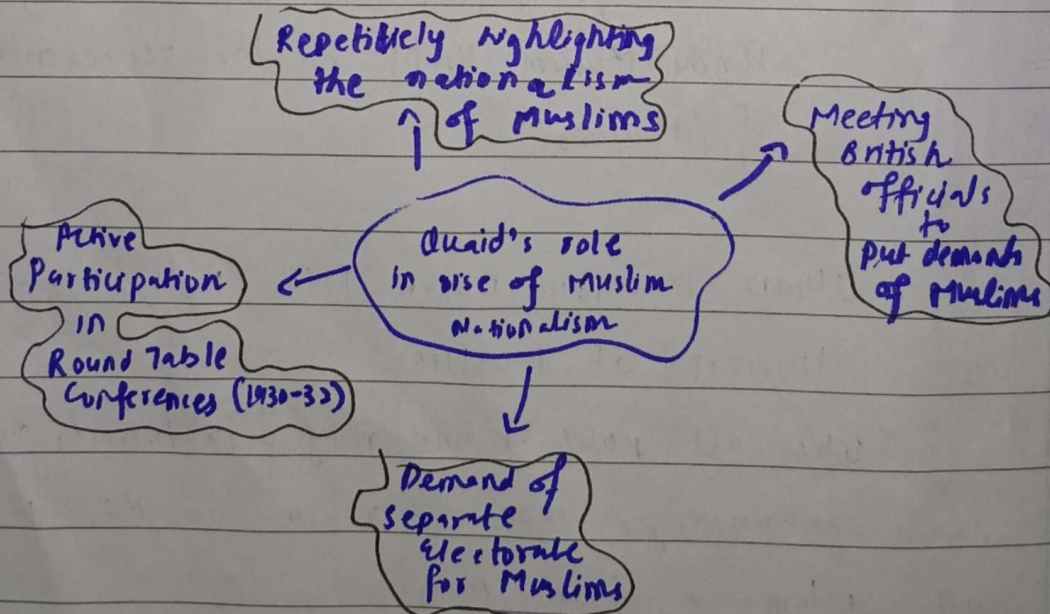 Repetitively highlighting
the nationalism
of Muslims
Meeting
British
officials
to
put demands
of Muslims
Quaid's role
in rise of Muslim
Nationalism
Active
Participation
in
Round Table
Conferences (1930-32)
Demand of
separate
electorate
for Muslims